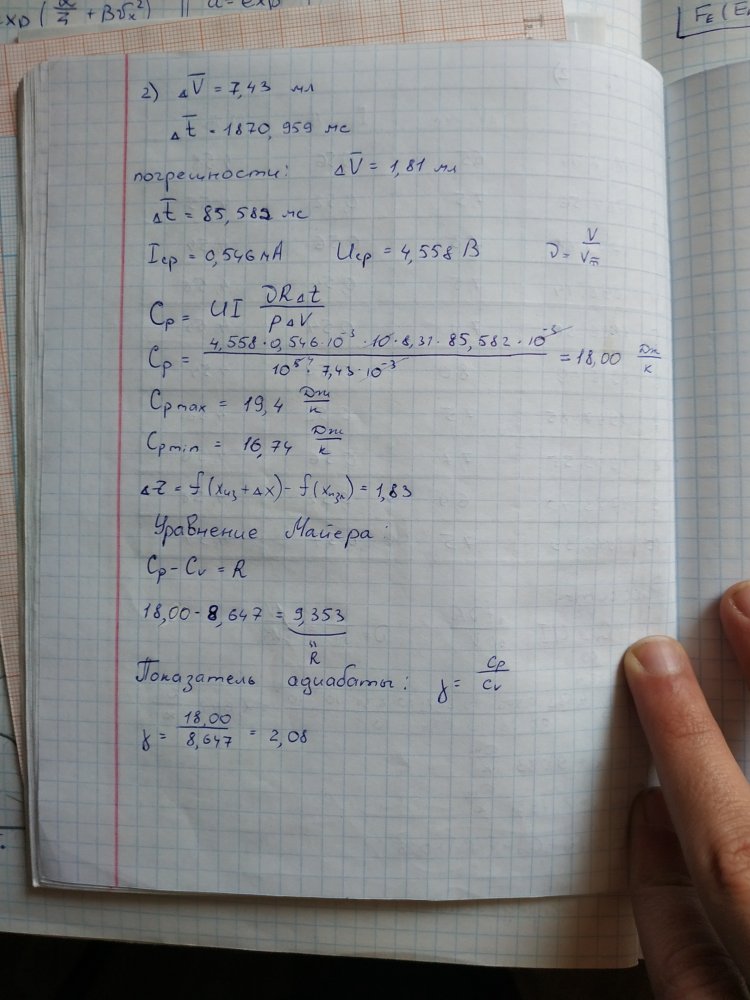 xp (α/4 + βv_x²) || α = exp
F_E (E
2) ΔV̅ = 7,43 мл
Δt̅ = 1870,959 мс
погрешности: ΔV̅ = 1,81 мл
Δt̅ = 85,582 мс
Iср = 0,546 мА Uср = 4,558 В ν = V/Vm
Cp = UI νRΔt/pΔV
Cp = 4,558·0,546·10⁻³·10·8,31·85,582·10⁻³/10⁵·7,43·10⁻³ = 18,00 Дж/к
Cp max = 19,4 Дж/к
Cp min = 16,74 Дж/к
Δz = f(xиз + Δx) - f(xизм) = 1,83
Уравнение Майера:
Cp - Cv = R
18,00 - 8,647 = 9,353
"
R
Показатель адиабаты: γ = Cp/Cv
γ = 18,00/8,647 = 2,08